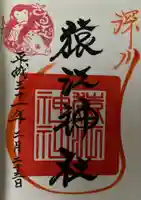 深川
猿江神社
平成三十一年二月二十三日